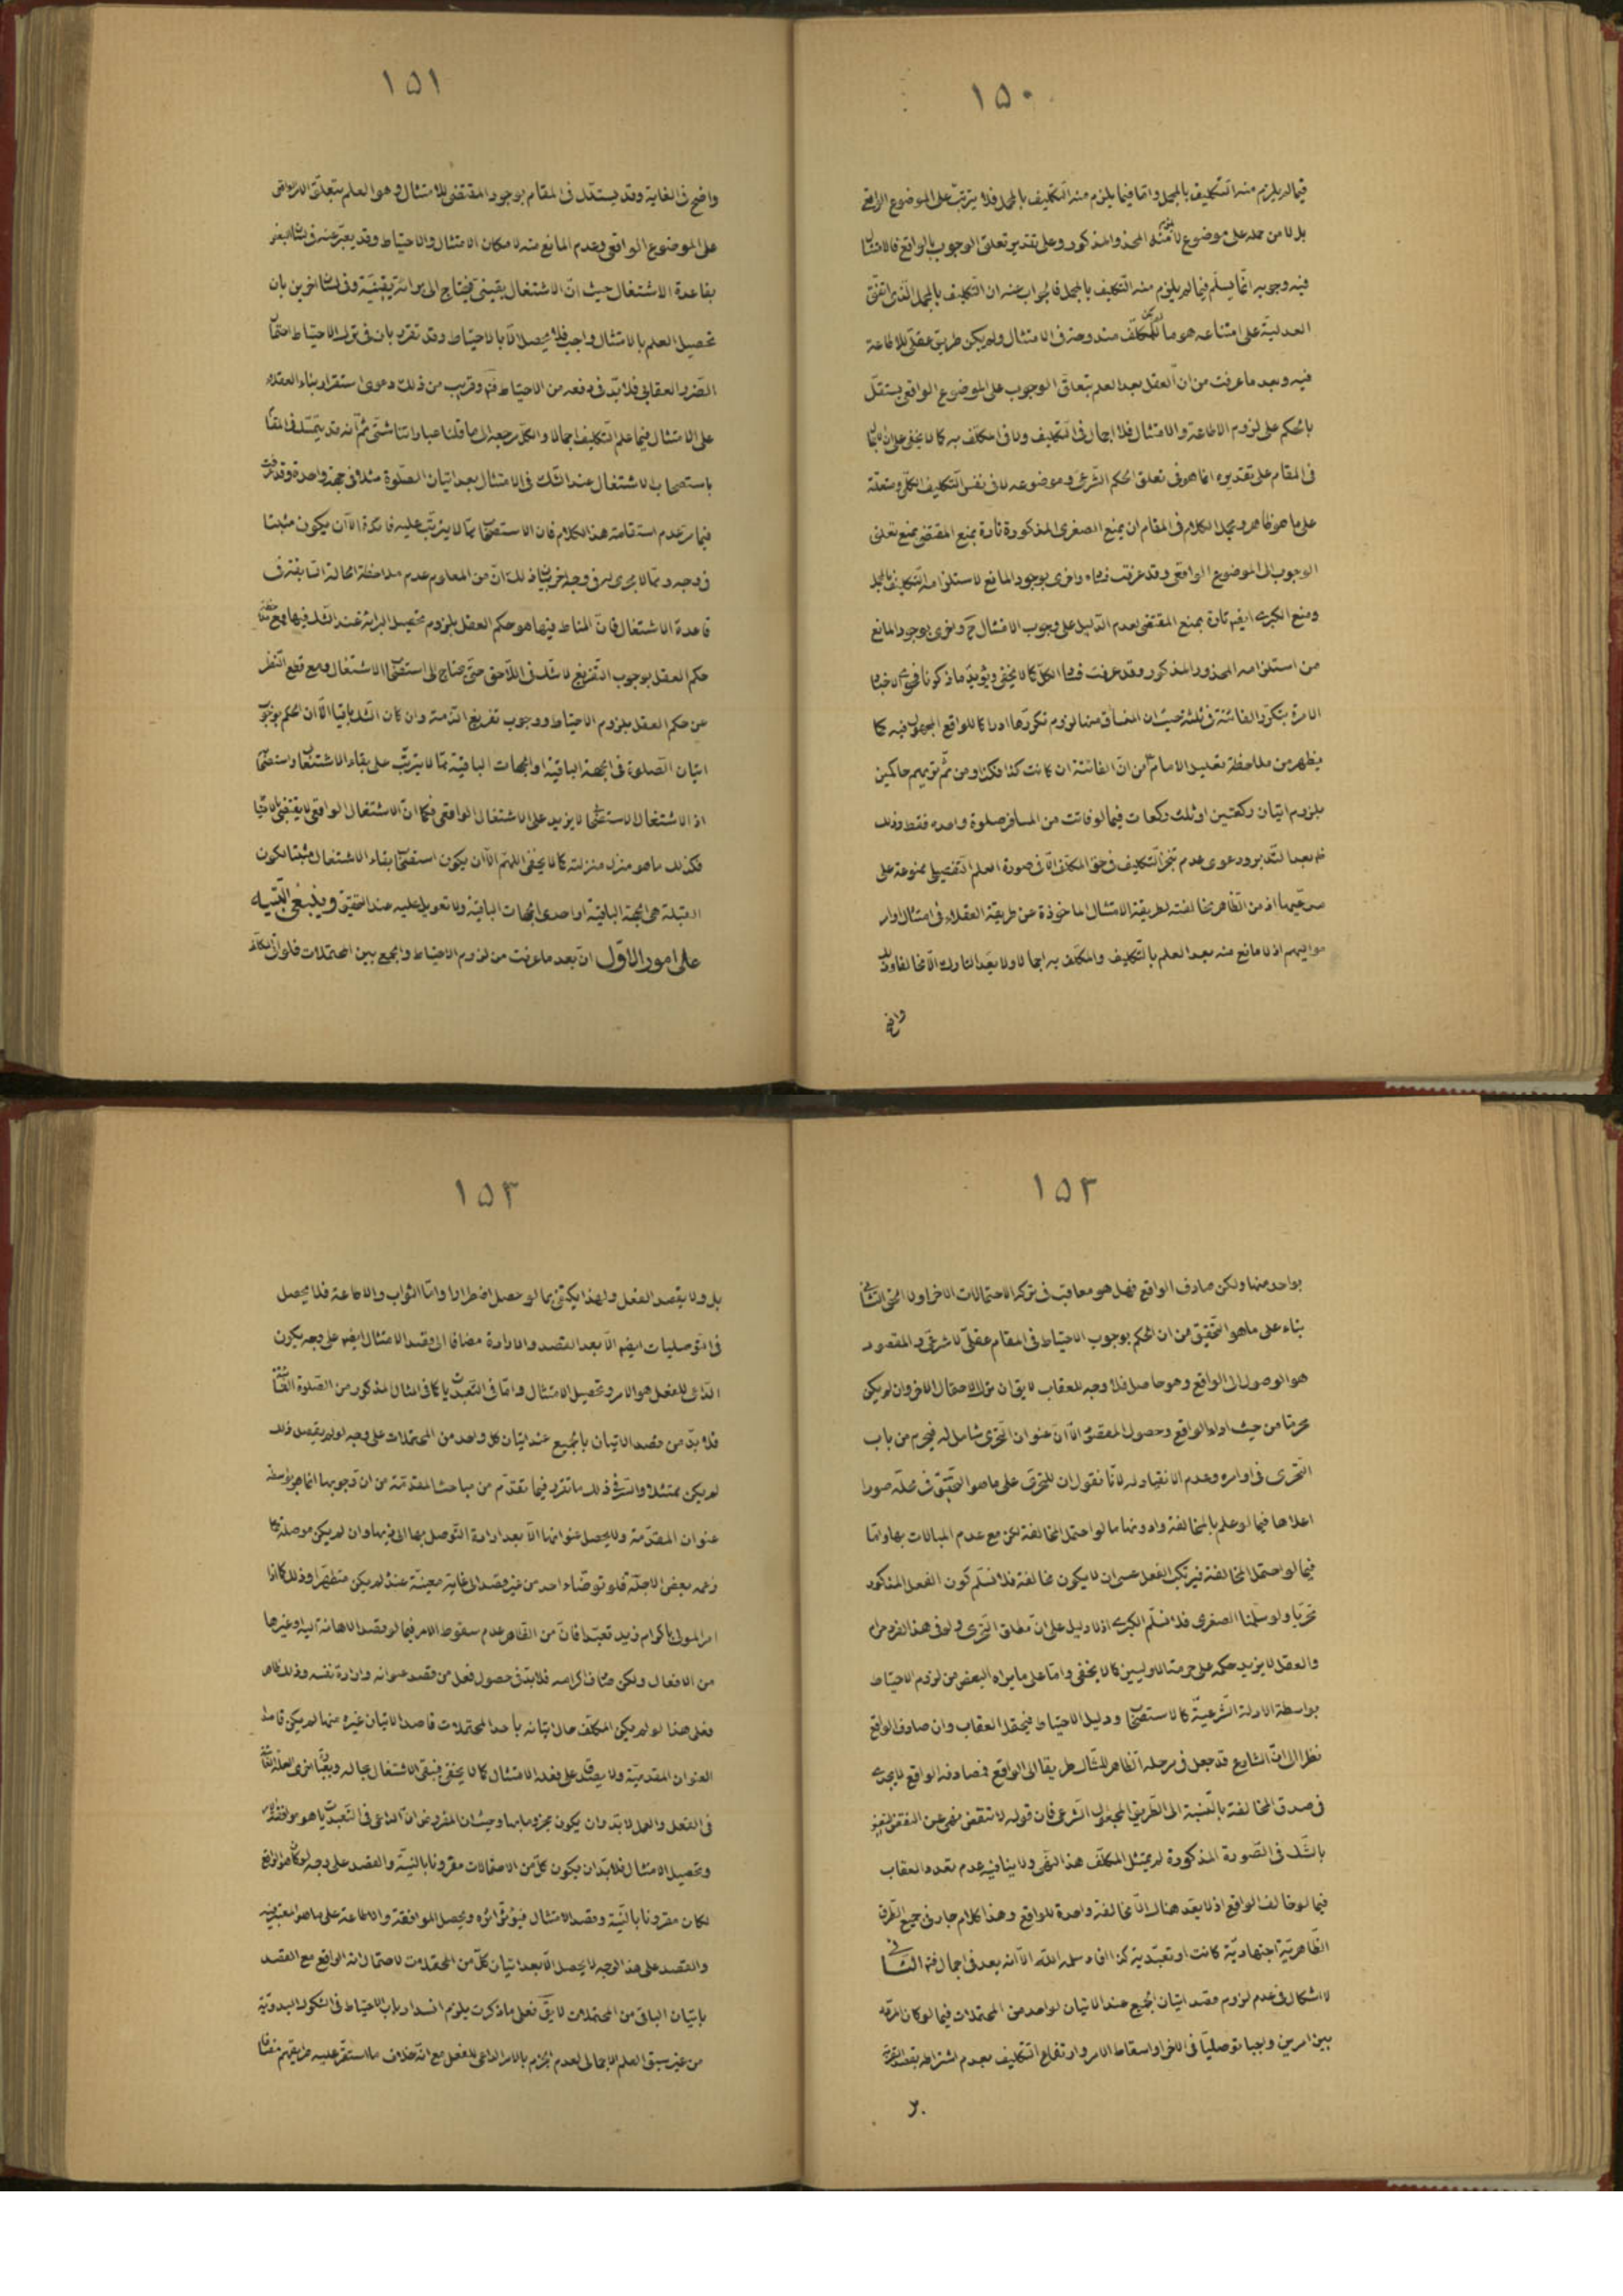 ١٥٠
فيما لم يلزم منه التكليف بالمجمل واما فيما يلزم منه التكليف بالمجمل فلا يترتب على الموضوع الواقعي
بل لا من حمله على موضوع المحذور المذكور وعلى تقدير تعلق الوجوب بالواقع فالامتثال
فيه وجوبه انما يسلم فيما لم يلزم منه التكليف بالمجمل فالجواب عنه ان التكليف بالمجمل الذي اتفق
العدلية على امتناعه هو ما للمكلف مندوحة في الامتثال ولم يكن طريق عقلي للاطاعة
فيه وبعد ما عرفت من ان العقل بعد العلم بتعلق الوجوب على الموضوع الواقعي يستقل
بالحكم على لزوم الاطاعة والامتثال فلا اجمال في التكليف ولا في المكلف به كما لا يخفى على ان
في المقام على تقديره انما هو في تعلق الحكم الشرعي وموضوعه لا في نفس التكليف الكلي ومتعلقه
على ما هو ظاهر ومجمل الكلام في المقام ان يمنع الصغرى المذكورة تارة بمنع المقتضي بمنع تعلق
الوجوب الى الموضوع الواقعي وقد عرفت واخرى بوجود المانع لاستلزامه التكليف بالمجمل
ومنع الكبرى ايضا تارة بمنع المقتضي لعدم الدليل على وجوب الامتثال ح واخرى بوجود المانع
من استلزامه المحذور المذكور وقد عرفت الكل كما لا يخفى ويؤيد ما ذكرنا
الامرة بتكرر الفائتة في ثلثة حيث ان المنساق منها لزوم تكررها ادراكا للواقع المجهول فيه كما
يظهر من ملاحظة تعليل الامام من ان الفائتة ان كانت كذا فكذا ومن ثم تريهم حاكمين
بلزوم اتيان ركعتين او ثلث ركعات فيما لو فاتت من المسافر صلوة واحدة فقط وذلك
بعد التدبر ودعوى عدم تنجز التكليف في حق المكلف الا في صورة العلم التفصيلي ممنوعة على
مدعيها اذ من الظاهر مخالفته لطريقة الامتثال الماخوذة عن طريقة العقلاء في امتثال اوامر
مواليهم اذ لا مانع منه بعد العلم بالتكليف والمكلف به اجمالا ولا يعد التارك الا مخالفا وذلك
واضح
١٥١
واضح في الغاية وقد يستدل في المقام بوجود المقتضي للامتثال وهو العلم بتعلق الامر الواقعي
على الموضوع الواقعي وعدم المانع منه لامكان الامتثال والاحتياط وقد يعبر عنه في لسان بعض
بقاعدة الاشتغال حيث ان الاشتغال يقيني فيحتاج الى براءة يقينية وفي لسان اخرين بان
تحصيل العلم بالامتثال واجب فلا يحصل الا بالاحتياط وقد تقرر بان في ترك الاحتياط احتمال
الضرر والعقاب فلا بد في دفعه من الاحتياط وقريب من ذلك دعوى استقرار بناء العقلاء
على الامتثال فيما علم التكليف اجمالا والكل مرجعه الى ما قلنا عباراتنا شتى ثم انه قد يتمسك في المقام
باستصحاب الاشتغال عند الشك في الامتثال بعد اتيان الصلوة مثلا في جهة واحدة وقد عرفت
فيما مر عدم استقامة هذا الكلام فان الاستصحاب مما لا يترتب عليه فائدة الا ان يكون مثبتا
في وجه ومما لا يجري في وجه اخر وذلك ان من المعلوم عدم ملاحظة الحالة السابقة في
قاعدة الاشتغال فان المناط فيها هو حكم العقل بلزوم تحصيل البراءة عند الشك فيها فمع ملاحظة
حكم العقل بوجوب التفريغ لا شك في اللاحق حتى يحتاج الى استصحاب الاشتغال ومع قطع النظر
عن حكم العقل بلزوم الاحتياط ووجوب تفريغ الذمة وان كان الشك باقيا الا ان الحكم بوجوب
اتيان الصلوة في الجهة الباقية او الجهات الباقية مما لا يترتب على بقاء الاشتغال واستصحابه
اذ الاشتغال الاستصحابي لا يزيد على الاشتغال الواقعي فكما ان الاشتغال الواقعي لا يقتضي
فكذلك ما هو منزل منزلته كما لا يخفى اللهم الا ان يكون استصحاب بقاء الاشتغال مثبتا لكون
القبلة هي الجهة الباقية او احدى الجهات الباقية ولا تعويل عليه عند التحقيق وينبغي التنبيه
على امور الاول ان بعد ما عرفت من لزوم الاحتياط والجمع بين المحتملات فلو اتى المكلف
١٥٢
بواحد منها ولكن صادف الواقع فهل هو معاقب في تركه الاحتمالات الاخر او لا الحق الثاني
بناء على ما هو التحقيق من ان الحكم بوجوب الاحتياط في المقام عقلي لا شرعي والمقصود
هو الوصول الى الواقع وهو حاصل فلا وجه للعقاب لا يق ان ترك الاحتمال الاخر وان لم يكن
محرما من حيث ادراك الواقع وحصول المقصود الا ان عنوان التجري شامل له فيحرم من باب
التجري في اوامره وعدم الانقياد له لانا نقول ان للتجري على ما هو التحقيق في محله صورا
اعلاها فيما لو علم بالمخالفة وادونها ما لو احتمل المخالفة لكن مع عدم المبالات بها واما
فيما لو احتمل المخالفة فيرتكب الفعل عسى ان لا يكون مخالفة فلا نسلم كون الفعل المذكور
تجريا ولو سلمنا الصغرى فلا نسلم الكبرى اذ لا دليل على ان مطلق التجري ولو في هذا الفرد حرام
والعقل لا يزيد حكمه على حرمة الاوليين كما لا يخفى واما على ما يراه البعض من لزوم الاحتياط
بواسطة الادلة الشرعية كالاستصحاب ودليل الاحتياط فيحتمل العقاب وان صادف الواقع
نظرا الى ان الشارع قد جعل في مرحلة الظاهر للشاك طريقا الى الواقع فمصادفة الواقع لا يجدي
في صدق المخالفة بالنسبة الى الطريق المجعول الشرعي فان قوله لا تنقض نهي عن النقض
بالشك في الصورة المذكورة لم يمتثل المكلف هذا النهي ولا ينافيه عدم تعدد العقاب
فيما لو خالف الواقع اذ لا يعد هناك الا مخالفة واحدة للواقع وهذا كلام جار في جميع الطرق
الظاهرية اجتهادية كانت او تعبدية كذا افاد سلمه الله الا انه بعد في اجمال فته الثاني
لا اشكال في عدم لزوم قصد اتيان الجميع عند الاتيان لواحد من المحتملات فيما لو كان الامر
بين امرين وجبا توصليا في الاخر او اسقاط الامر وارتفاع التكليف بعدم اشتراطه بقصد القربة
١٥٣
بل ولا بقصد الفعل ولهذا يكتفى بما لو حصل اضطرارا واما الثواب والاطاعة فلا يحصل
في التوصليات ايضا الا بعد القصد والارادة مضافا الى قصد الامتثال ايضا على وجه يكون
الداعي للفعل هو الامر وتحصيل الامتثال واما في التعبديات كما في المثال المذكور من الصلوة
فلا بد من قصد الاتيان بالجميع عند اتيان كل واحد من المحتملات على وجه لو لم يقصد ذلك
لم يكن ممتثلا والسر في ذلك ما تقرر فيما تقدم من مباحث المقدمة من ان وجوبها انما هو بواسطة
عنوان المقدمة ولا يحصل عنوانها الا بعد ارادة التوصل بها الى ذيها وان لم يكن موصلة كما
زعمه بعض الاجلة فلو توضأ احد من غير قصد الى غاية معينة عنده لم يكن متطهرا وذلك كما اذا
امر المولى باكرام زيد تعبدا فان من الظاهر عدم سقوط الامر فيما لو قصد الاهانة اليه وغيرها
من الافعال ولكن صادف اكرامه فلا بد في حصول فعل من قصد عنوانه وارادة نفسه وذلك ظاهر
فعلى هذا لو لم يكن المكلف حال اتيانه باحد المحتملات قاصدا لاتيان غيره منها لم يكن قاصدا
العنوان المقدمية ولا يصدق على فعله الامتثال كما لا يخفى فيبقى الاشتغال بحاله
في الفعل والعمل لا بد وان يكون مجزوما بها وحيث ان المفروض ان الداعي في التعبديات هو موافقة الامر
وتحصيل الامتثال فلا بد ان يكون كل من الاحتمالات مقرونا بالنية والقصد على وجه لو كان هو الواقع
لكان مقرونا بالنية وقصد الامتثال فيؤثر اثره ويحصل الموافقة والاطاعة على ما هو المعتبر فيه
والقصد على هذا الوجه لا يحصل الا بعد اتيان كل من المحتملات لاحتمال انه الواقع مع القصد
باتيان الباقي من المحتملات لا يق فعلى ما ذكرت يلزم انسداد باب الاحتياط في الشكوك البدوية
من غير سبق العلم الاجمالي لعدم الجزم بالامر الداعي للفعل مع انه خلاف ما استقر عليه طريقتهم